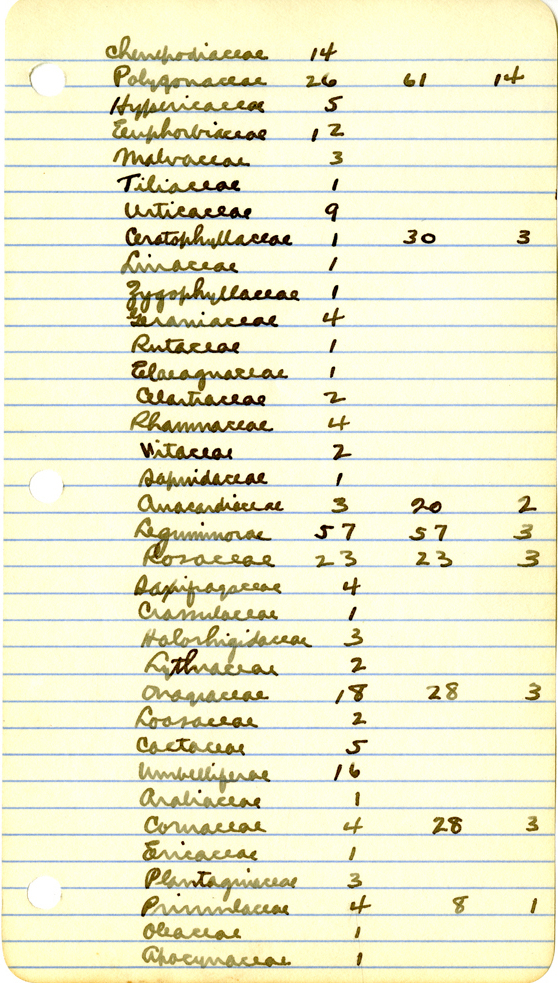 Chenopodiaceae 14
Polygonaceae 26 61 14
Hypericaceae 5
Euphorbiaceae 12
Malvaceae 3
Tiliaceae 1
Urticaceae 9
Ceratophyllaceae 1 30 3
Linaceae 1
Zygophyllaceae 1
Geraniaceae 4
Rutaceae 1
Elaeagnaceae 1
Celastraceae 2
Rhamnaceae 4
Vitaceae 2
Sapindaceae 1
Anacardiaceae 3 20 2
Leguminosae 57 57 3
Rosaceae 23 23 3
Saxifragaceae 4
Crassulaceae 1
Halorhigidaceae 3
Lythraceae 2
Onagraceae 18 28 3
Loasaceae 2
Cactaceae 5
Umbelliferae 16
Araliaceae 1
Cornaceae 4 28 3
Ericaceae 1
Plantaginaceae 3
Primulaceae 4 8 1
Oleaceae 1
Apocynaceae 1